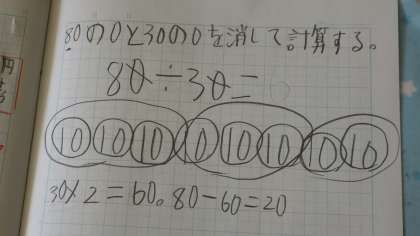 80の0と30の0を消して計算する。
80÷30=
10 10 10 10 10 10 10 10
30×2=60。80-60=20
円